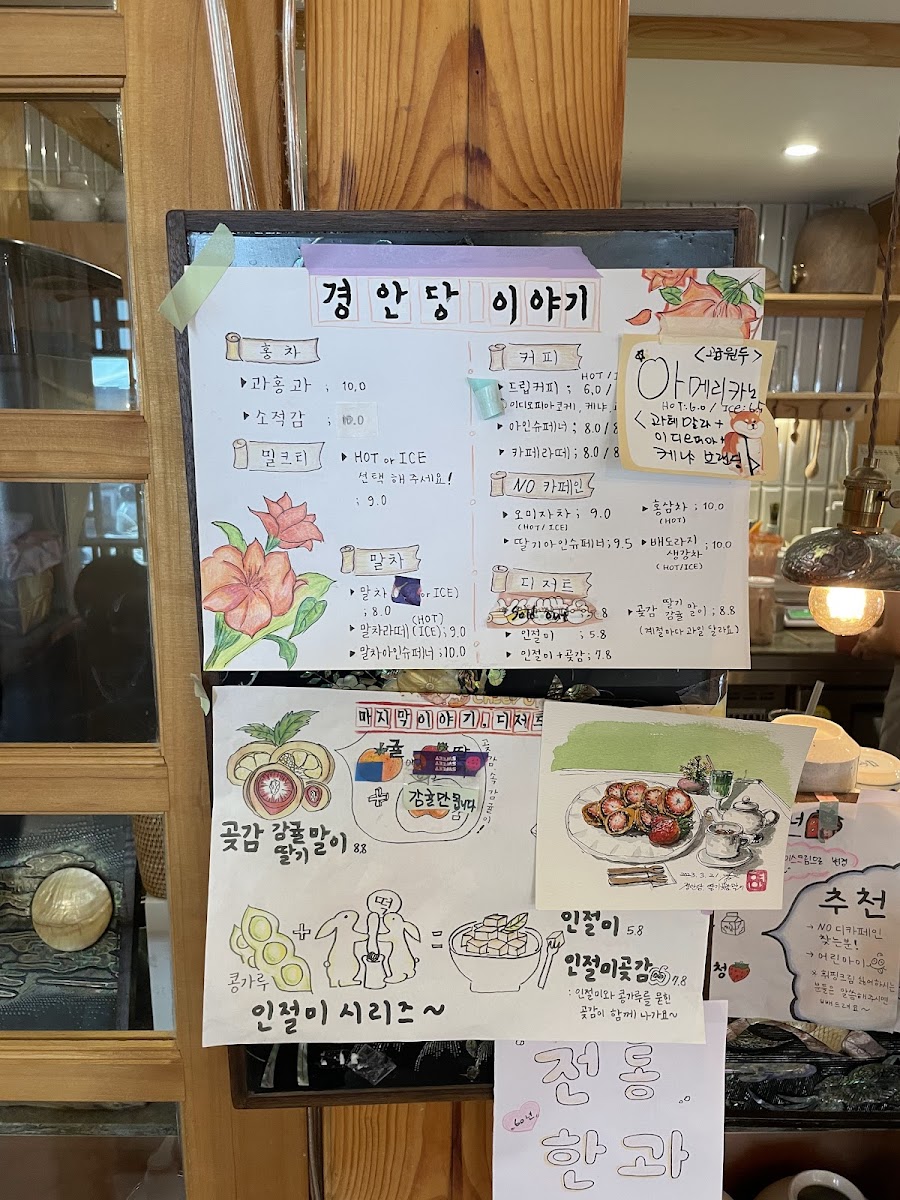 경안당 이야기
홍차
▸과홍과 ; 10.0
▸소적감 ; 10.0
밀크티
▸HOT or ICE
선택해주세요!
; 9.0
말차
▸말차 or ICE)
; 8.0
▸말차라떼 (HOT) (ICE) ; 9.0
▸말차아인슈페너 ; 10.0
커피
HOT / I
▸드립커피 ; 6.0 /
▸아인슈페너 ; 8.0 / 8
▸카페라떼 ; 8.0 / 8
NO 카페인
▸오미자차 ; 9.0
(HOT / ICE)
▸딸기아인슈페너 ; 9.5
▸홍삼차 ; 10.0
(HOT)
▸배도라지
생강차 ; 10.0
(HOT/ICE)
디저트
Sold out 8
▸인절미 ; 5.8
▸인절미+곶감 ; 7.8
▸곶감 딸기 감귤 말이 ; 8.8
(계절마다 과일 달라요)
아메리카노
HOT: 6.0 / ICE: 6.5
<과테말라+
이디오피아+
케냐
마지막이야기, 디저트
귤
딸
+
감귤만 됩니다
곶감 감귤 딸기 말이 8.8
콩가루
+
떡
=
인절미 시리즈~
인절미 5.8
인절미곶감 7.8
: 인절미와 콩가루를 묻힌
곶감이 함께 나가요~
2023. 3. 21
추천
→ NO 디카페인
찾는분!
→ 어린아이
* 휘핑크림 싫어하시는
분들은 말씀해주시면
빼드려요~
청
전통
한과